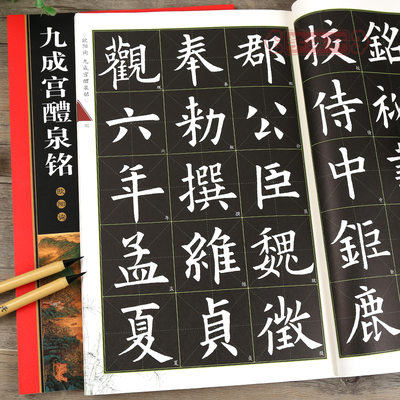 九成宫醴泉铭
欧阳询
欧阳询 九成宫醴泉铭
銘
挍侍中鉅鹿
郡公臣魏徵
奉勑撰維貞
觀六年孟夏